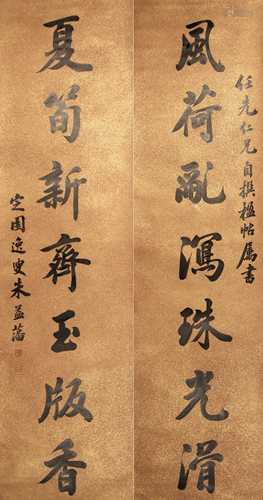 任先仁兄自撰楹帖属書
風荷亂瀉珠光滑
夏筍新齊玉版香
定園逸叟朱益藩